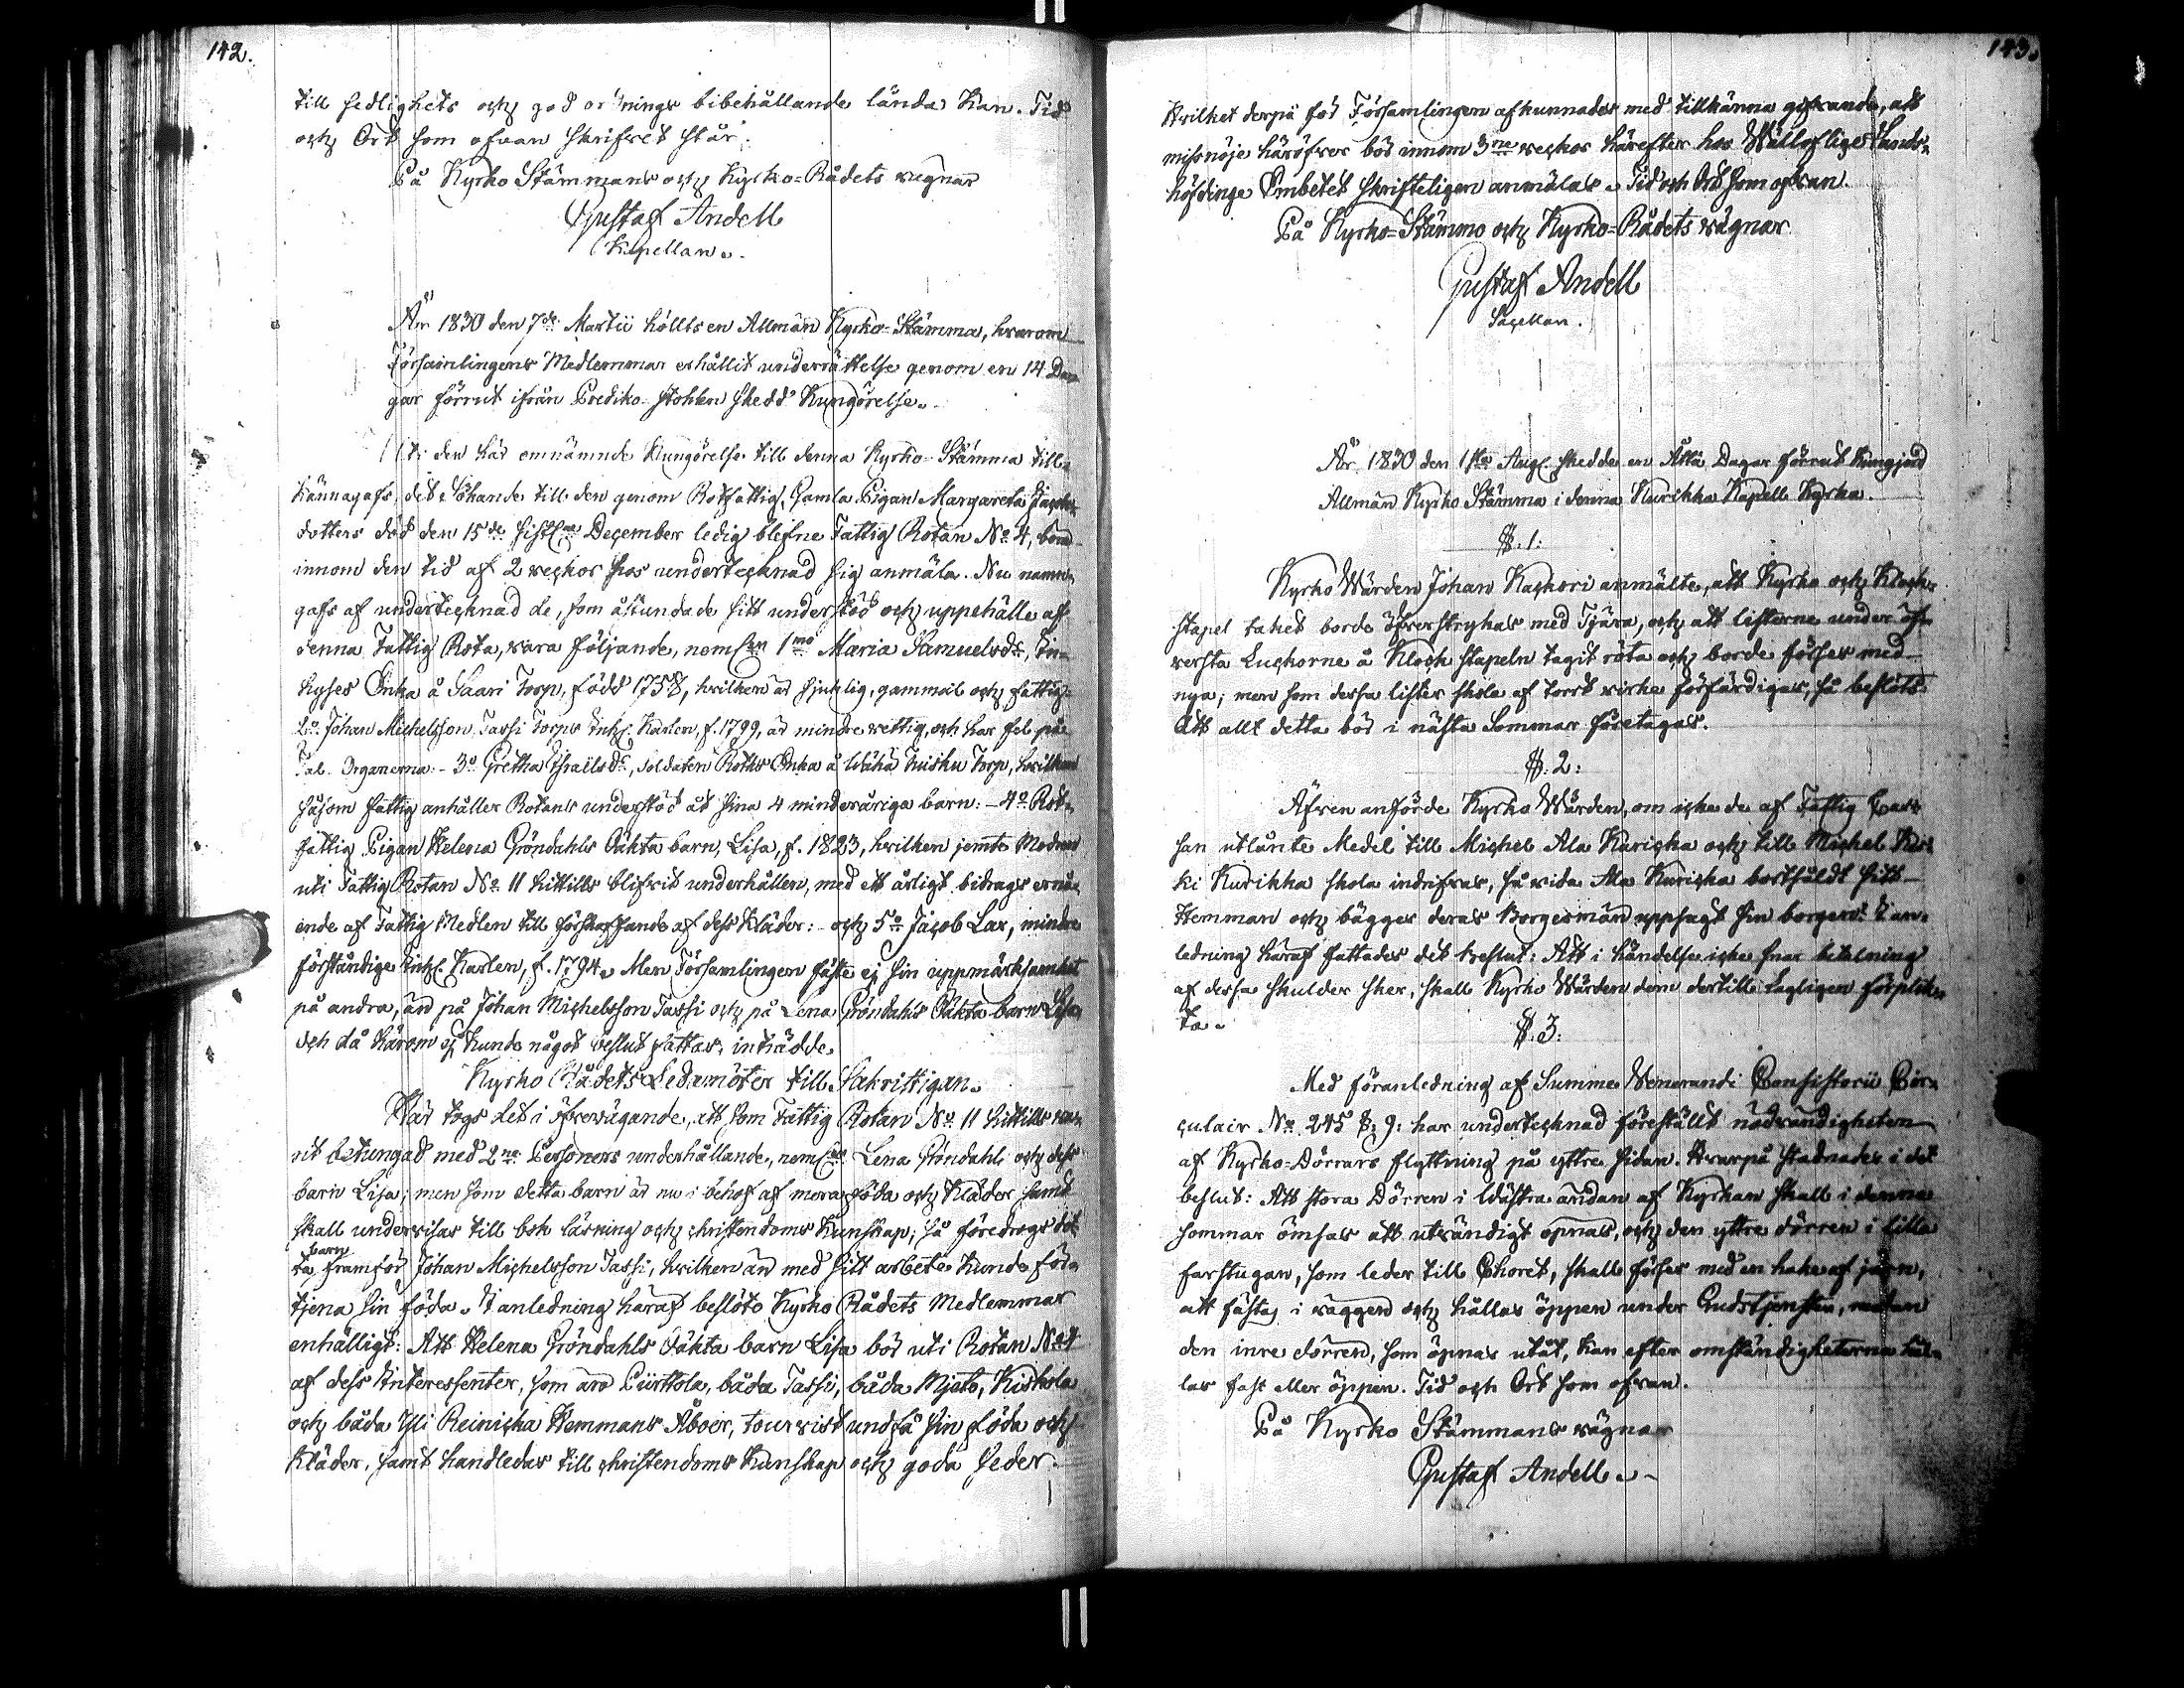 142.
till sedlighets och god ordnings bibehållande lända kan. Tid
och Ort som ofvan skrifvet står.
På Kyrko Stämmans och Kyrko-Rådets vägnar
Gustaf Andell
Kapellan.
År 1830 den 7de Martii hölls en Allmän Kyrko-Stämma, hvarom
Församlingens Medlemmar erhållit underrättelse genom en 14 Da-
gar förrut ifrån Prediko-Stohlen skedd Kungörelse.
Uti den här omnämnde Kungörelse till denna Kyrko-Stämma till-
kännagafs, det Sökande till den genom Rotfattig, Gamla Pigan Margareta Jacobs
dotters död den 15de sistl. December ledig blefne Fattig Rotan No 4, borde
innom den tid af 2 veckor hos undertecknad sig anmäla. Nu namn-
gafs af undertecknad de, som åstundade sitt understöd och uppehälle af
denna Fattig Rota, vara följande, nemln 1mo Maria Samuelsdr, In-
hyses Enka å Saari Torp, född 1758, hvilken är sjuklig, gammal och fattig:
2o Johan Michelsson Tassi Torps Inh. Karlen, f. 1799, är mindre vettig, och har fel på
Tal-Organerna: - 3o Gretha Israilsdr, soldaten Roths Enka å Wäha Tuisku Torp, hvilken
såsom fattig anhåller Rotans understöd åt sina 4 minderåriga barn: - 4o Rot-
fattig Pigan Helena Gröndahls Oäkta barn, Lisa, f. 1823, hvilken jemte Modren
uti Fattig Rotan No 11 hittills blifvit underhållen, med ett årligt bidrags ernå-
ende af Fattig Medlen till förskaffande af dess Kläder: - och 5o Jacob Lax, mindre
förståndige Inh. Karlen, f. 1794. Men Församlingen fäste ej sin uppmärksamhet
på andra, än på Johan Michelsson Tassi och på Lena Gröndahls Oäkta barn Lisa,
och då härom ej kunde något beslut fattas, inträdde
Kyrko Rådets Ledamöter till Sakristigan.
Här togs det i öfvervägande, att som Fattig Rotan No 11 hittills va-
rit betungad med 2ne Personers underhållande, nemln Lena Gröndahl och dess
barn Lisa; men som detta barn är nu i behof af mera föda och Kläder samt
skall undervisas till bok läsning och christendoms Kunskap; så föredrogs det-
ta barn framför Johan Michelsson Tassi, hvilken än med sitt arbete kunde för-
tjena sin föda. I anledning häraf beslöto Kyrko Rådets Medlemmar
enhälligt: Att Helena Gröndahls Oäkta barn Lisa bör uti Rotan No 4
af dess Interessenter, som äro Piirttola, båda Tassi, båda Mjeto, Kiskola
och båda Yli Reinicka Hemmans Åboer, tourvist undfå sin föda och
Kläder, samt handledas till christendoms Kunskap och goda seder.
143.
Hvilket derpå för Församlingen afkunnades med tillkänna gifvande, att
missnöje häröfver bör innom 3ne veckor härefter hos Wällofliga Lands-
höfdinge Embetet skrifteligen anmälas. Tid och Ort som ofvan.
På Kyrko-Stämmo och Kyrko-Rådets vägnar
Gustaf Andell
Sacellan.
År 1830 den 1sta Aug. skedde en Åtta Dagar förrut Kungjord
Allmän Kyrko Stämma i denna Kurikka Kapell Kyrka.
§. 1:
Kyrko Wärden Johan Kackori anmälte, att Kyrko och Klock-
stapel taket borde öfverstrykas med Tjära, och att listerne under öf-
versta Luckorne å Klock stapeln tagit röta och borde förses med
nya; men som dessa lister skola af torrt virke förfärdigas, så beslöts:
Att allt detta bör i nästa Sommar företagas.
§. 2:
Äfven anförde Kyrko Wärden, om icke de af Fattig Cas-
san utlånte Medel till Michel Ala Karicka och till Michel
Kurikka skola indrifvas, så vida Ala Karicka bortsåldt sitt
Hemman och bägges deras Borgesmän uppsagt sin borgen? I an-
ledning häraf fattades det beslut: Att i händelse icke snar betalning
af dessa skulder sker, skall Kyrko Wärden dem dertill Lagligen förplik-
ta.
§. 3:
Med föranledning af Summe Venerandi Consistorii Cir-
culair No 245 §. 9: har undertecknad föreställt nödvändigheten
af Kyrko-Dörrars flyttning på yttre sidan. Hvarpå stadnades i det
beslut: Att stora Dörren i Wästra ändan af Kyrkan skall i denna
sommar ömsas att utvändigt öpnas, och den yttre dörren i lilla
farstugan, som leder till Choret, skall förses med en hake af järn,
att fästas i väggen och hållas öppen under Gudstjensten, medan
den inre dörren, som öpnas utåt, kan efter omständigheterna hål-
las fast eller öppen. Tid och Ort som ofvan.
På Kyrko Stämmans vägnar
Gustaf Andell.